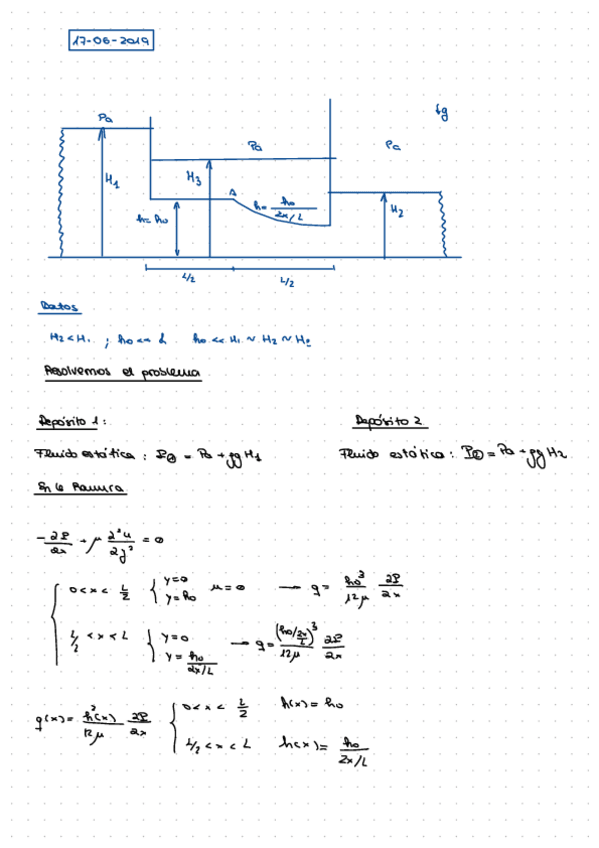 17-06-2019
Pa
Pa
Pa
↓g
H₁
H₃
A
h = h₀/(2x/L)
h = h₀
H₂
L/2
L/2
Datos
H₂ < H₁ ; h₀ << L h₀ << H₁ ~ H₂ ~ H₀
Resolvemos el problema
Depósito 1:
Depósito 2
Fluido estática : P① = Pa + ρgH₁
Fluido estática : P② = Pa + ρgH₂
En la Ranura
-∂P/∂x + μ ∂²u/∂y² = 0
0 < x < L/2 { y=0 y=h₀ u=0 → q = h₀³/12μ ∂P/∂x
L/2 < x < L { y=0 y = h₀/(2x/L) → q = (h₀/(2x/L))³/12μ ∂P/∂x
q(x) = h³(x)/12μ ∂P/∂x { 0 < x < L/2 h(x) = h₀
L/2 < x < L h(x) = h₀/(2x/L)